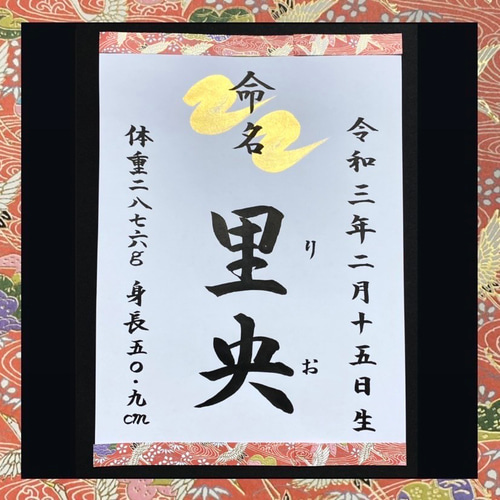 令和三年二月十五日生
命名
里央
りお
体重二八七六g 身長五〇・九cm